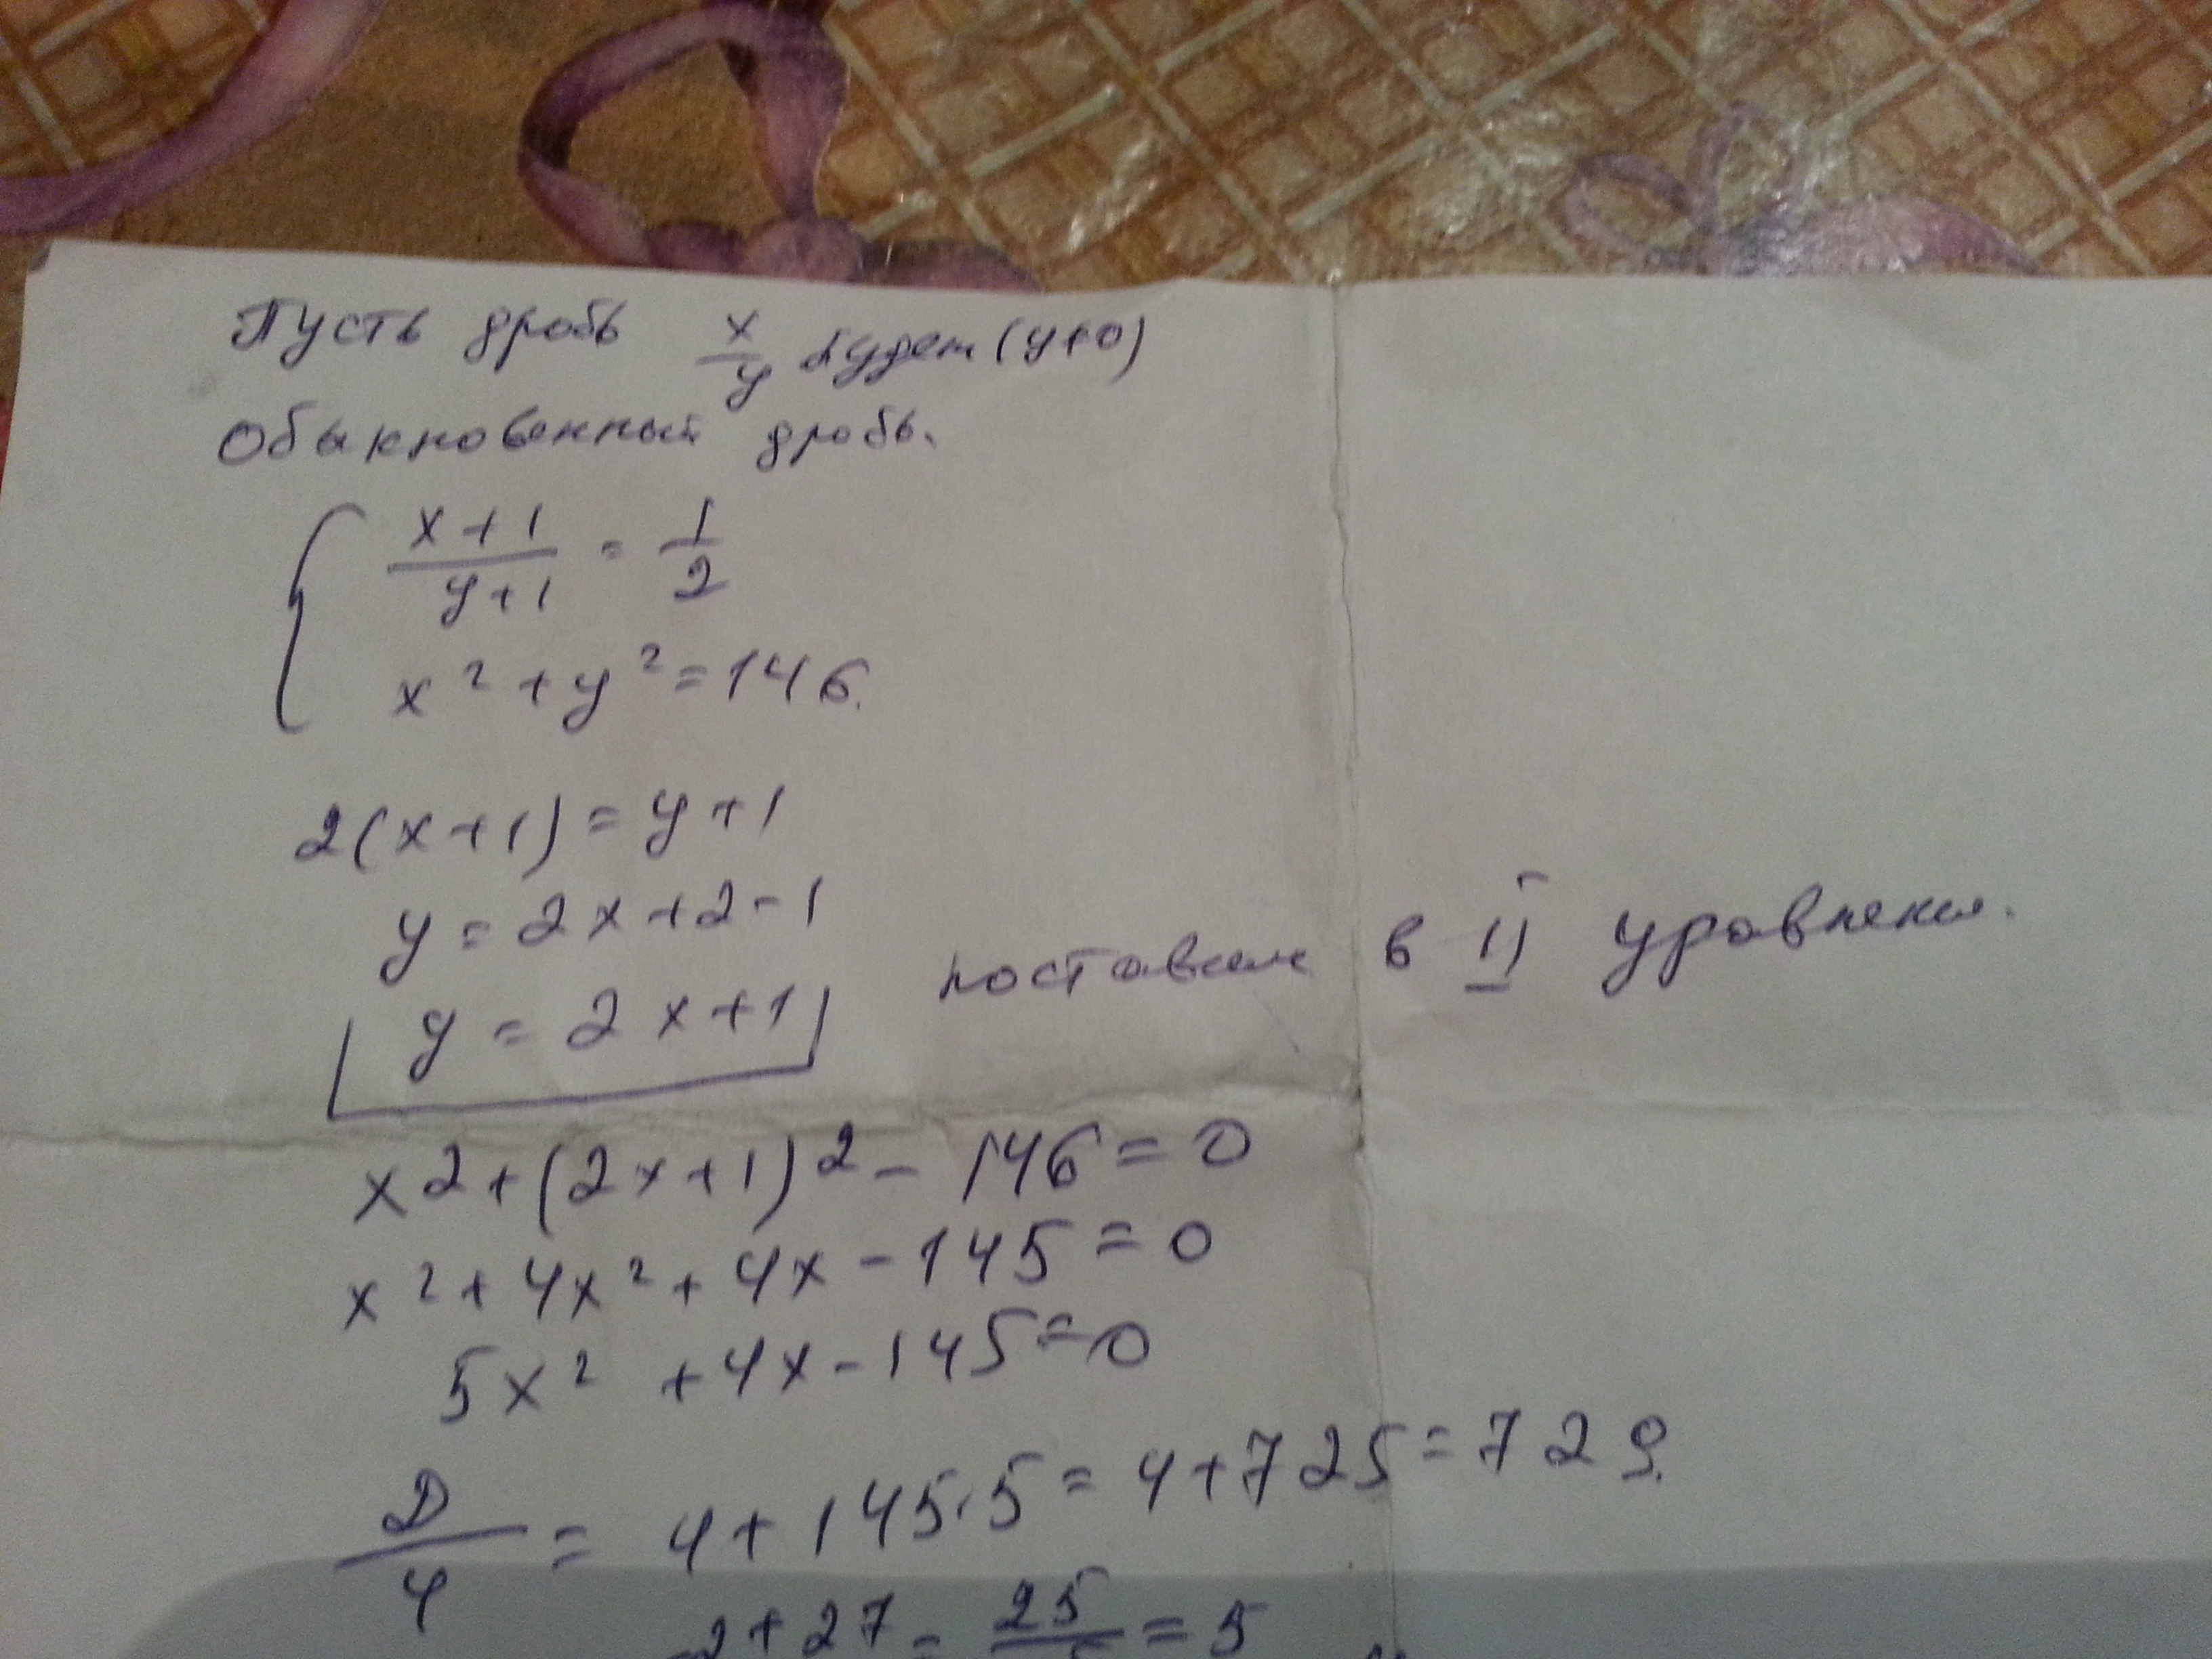 Пусть дробь x/y будет (y≠0)
Обыкновенный дробь.
{ (x+1)/(y+1) = 1/2
x² + y² = 146.
2(x+1) = y+1
y = 2x+2-1
y = 2x+1 поставим в II уравнения.
x² + (2x+1)² - 146 = 0
x² + 4x² + 4x - 145 = 0
5x² + 4x - 145 = 0
D/4 = 4 + 145·5 = 4 + 725 = 729.
-2+27 = 25/5 = 5